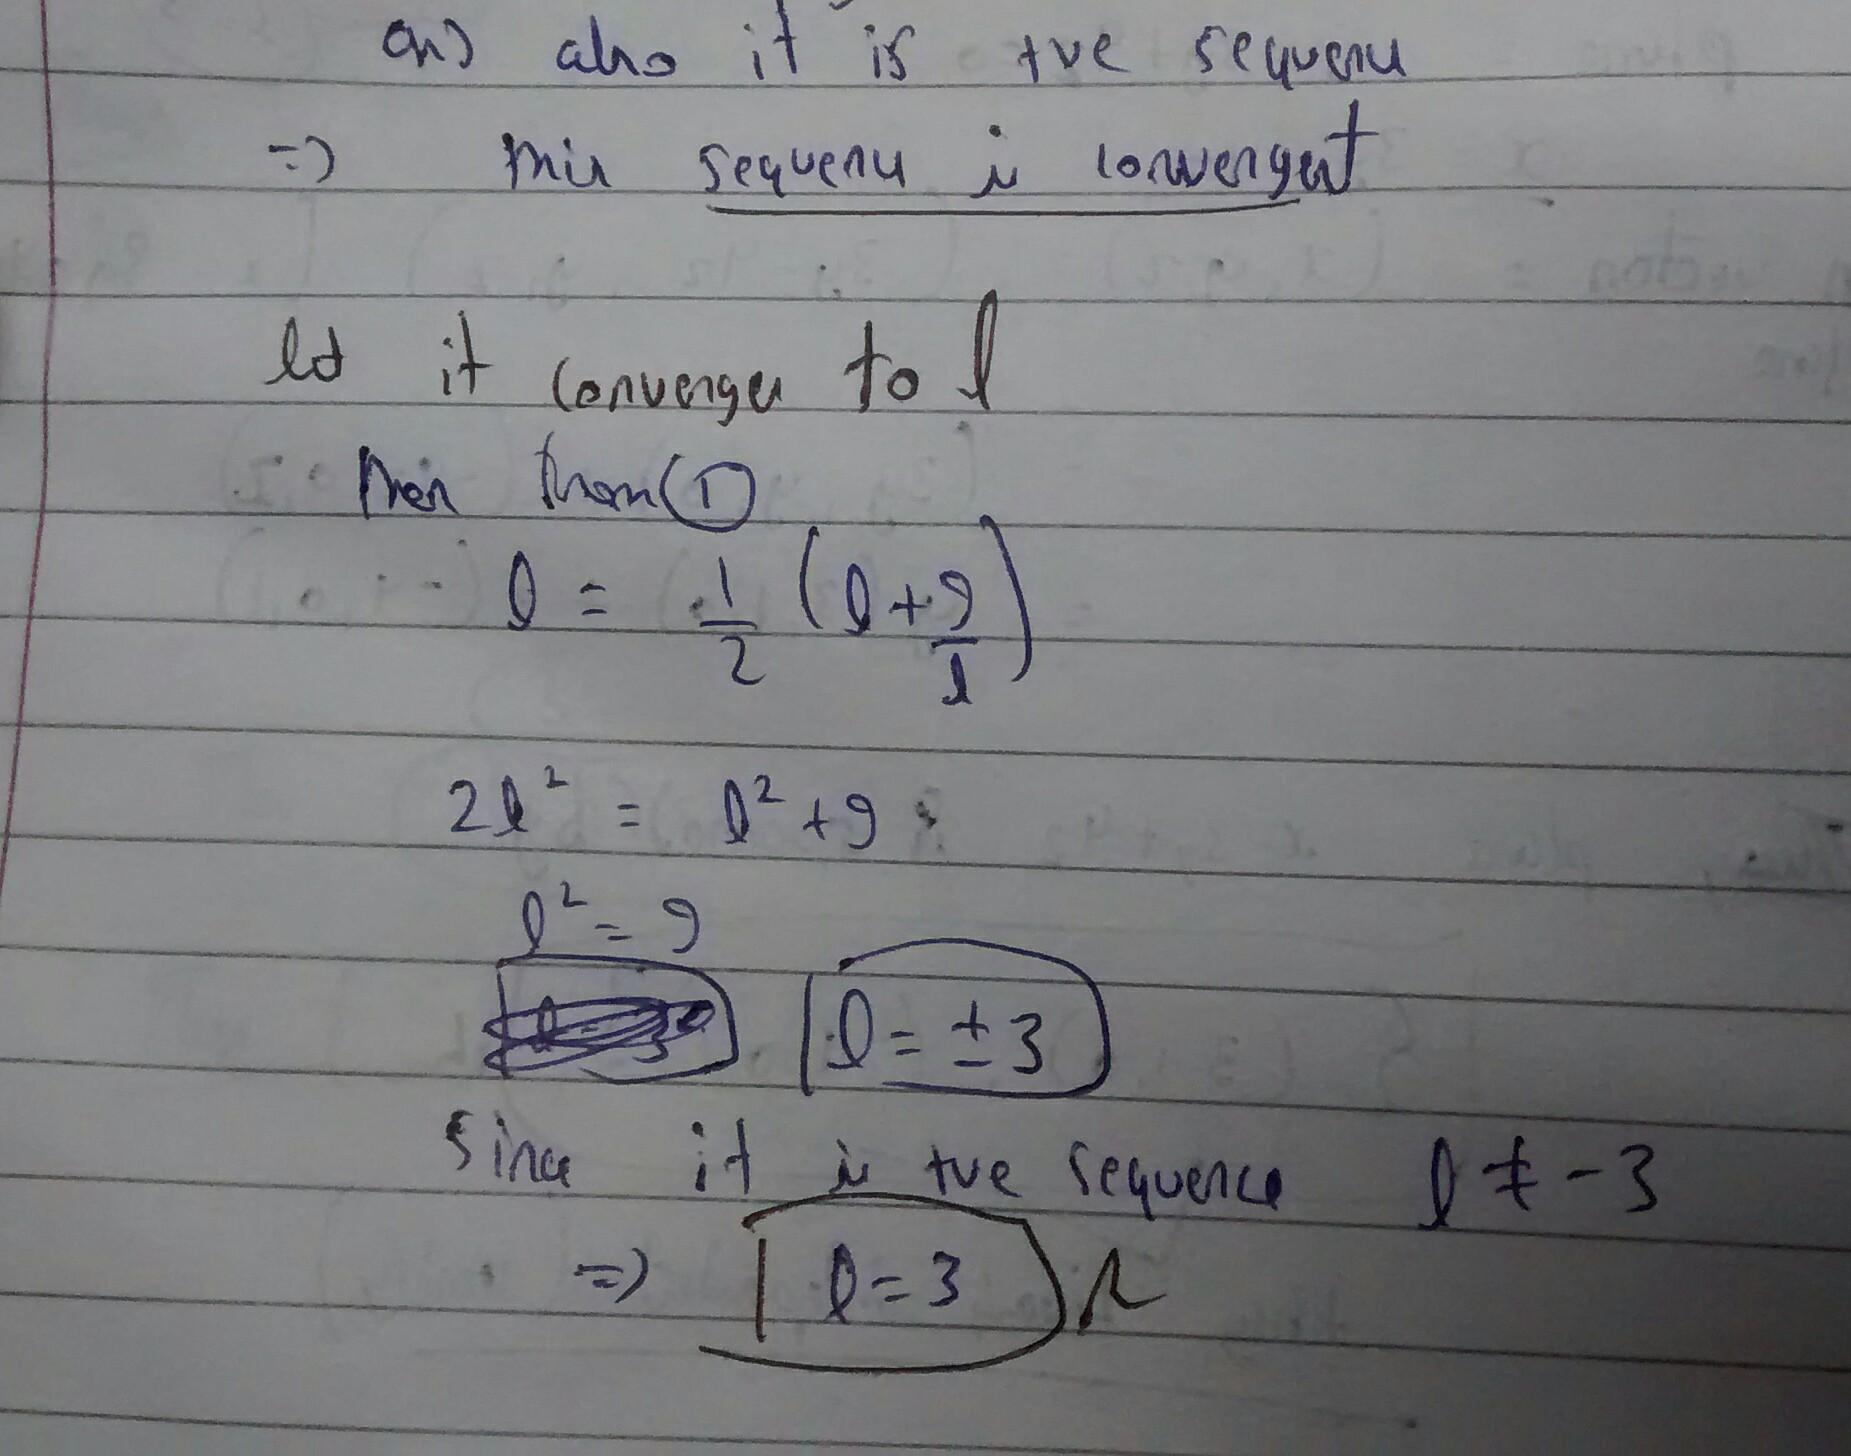 also it is +ve sequence
=) this sequence is convergent
let it converges to l
then from ①
l = 1/2 (l + 9/l)
2l² = l² + 9
l² = 9
l = ± 3
since it is +ve sequence l ≠ -3
=) l = 3